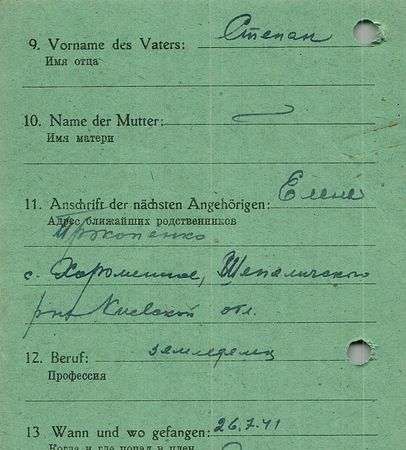 9. Vorname des Vaters: Степан
Имя отца
10. Name der Mutter:
Имя матери
11. Anschrift der nächsten Angehörigen: Елене
Адрес ближайших родственников
Прокопенко
с. Хороменное, Шепаличского
рна Киевской обл.
12. Beruf: земледелец
Профессия
13 Wann und wo gefangen: 26.7.41
Когда и где попал в плен